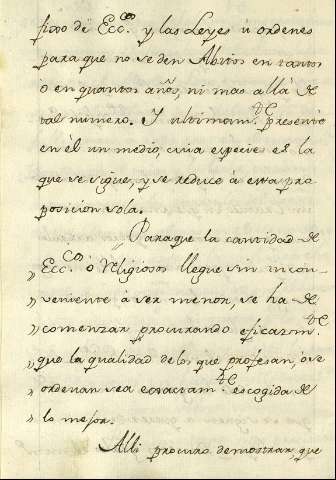 fixo de Ecc.cos y las Leyes ú ordenes
para que no se den Abitos en tantos
ó en quantos años, ni mas allà de
tal numero. I ultimam.te presenté
en èl un medio, cuia especie es la
que se sigue, y se reduce à esta pro
posicion sola.
Para que la cantidad de
" Ecc.cos ò Religiosos llegue sin incon-
" veniente à ser menor, se ha de
" comenzar procurando eficazm.te
" que la qualidad de los que profesan, ò se
" ordenan sea exactam.te escogida de
" lo mejor.
Alli procuro demostrar, que